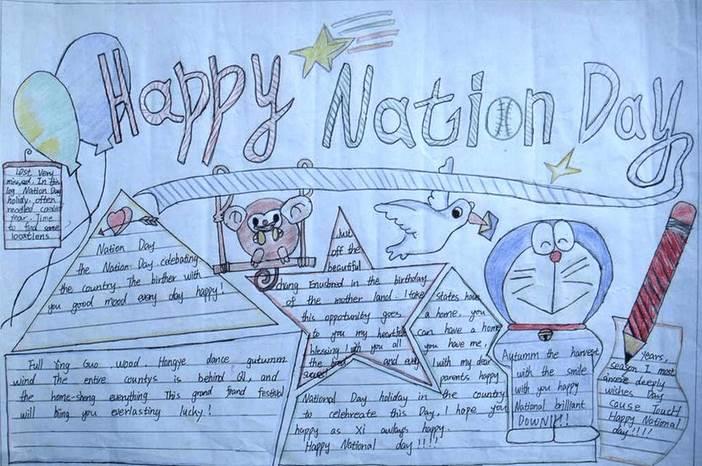 Happy Nation Day
Lost Very
missed. In the
log Nation Day
holiday, often
recalled
Time
to find some
locations
Nation Day
the Nation Day celebrating
the country. The birther with
you good mood every day happy!
but
off the
beautiful
chang Enusbred in the birthday
of the mother land. I take
this oppotunity goes
to you my heartfelt
blessing I wish you all
the best and every
success
States have
a home, you
can have a home
you have me,
I with my dear
parents happy
Full Ying Guo wood. Hongye dance gutumm
wind The entire countys is behind Qi, and
the home-shang everything This grand frand festival
will bring you everlasting lucky!
National Day holiday in the country
to celebreate this Day. I hope you
happy as Xi aulways happy.
Happy National day!!!!
Autumm the harvest
with the smile
with you happy
National brilliant
DOWN!!!
Years,
season I most
sincere deeply
wishes Day
couse Touch
Happy National
day!!!!